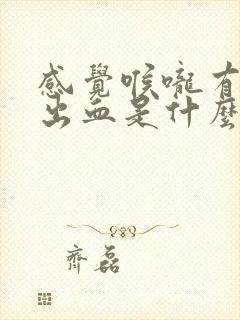 感覺喉嚨有
出血是什麼
齊磊